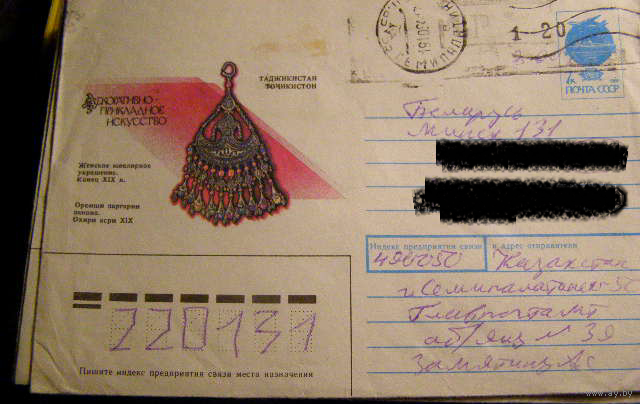 ТАДЖИКИСТАН
ТОҶИКИСТОН
ДЕКОРАТИВНО-
ПРИКЛАДНОЕ
ИСКУССТВО
Женское ювелирное
украшение.
Конец XIX в.
Ороиши заргарии
занона.
Охири асри XIX
1-20
7к
ПОЧТА СССР
Беларусь
Минск 131
Индекс предприятия связи и адрес отправителя
490050 Казахстан
г. Семипалатинск-50
Главпочтамт
аб/ящ N 39
220131
Пишите индекс предприятия связи места назначения
www.ay.by